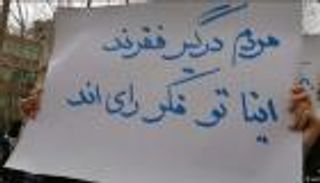 مردم درگیر فقرند
اینا تو فکر رای اند